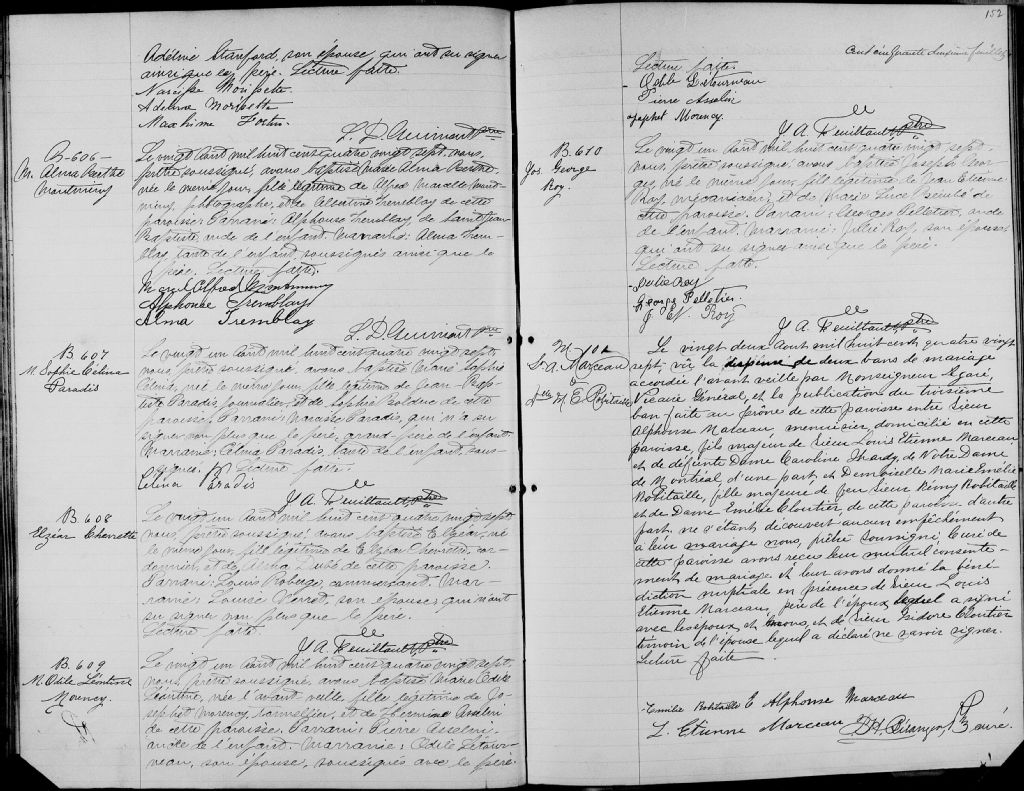 Adéline Stanford, son épouse qui ont su signer
ainsi que le père. Lecture faite.
Narcisse Morisette
Adelina Morisette
Maxhime Fortin
L. D. Guimont ptre
B-606-
M. Alma Marthe
Le vingt Août mil huit cent quatre vingt sept, nous,
prêtre soussigné, avons baptisé Marie Alma Marthe
née le même jour, fille légitime de Alfred Marcelle
photographe, et de Albertine Tremblay de cette
paroisse. Parrain: Alphonse Tremblay, de Saint Jean
Baptiste, oncle de l'enfant. Marraine: Alma Trem-
blay, tante de l'enfant, soussignés ainsi que le
père. Lecture faite.
Alfred
Alphonse Tremblay
Alma Tremblay
L. D. Guimont ptre
B 607
M. Sophie Célina
Paradis
Le vingt un Août mil huit cent quatre vingt sept
nous prêtre soussigné, avons baptisé Marie Sophie
Célina, née le même jour, fille légitime de Jean-Bap-
tiste Paradis, journalier, et de Sophie Bolduc de cette
paroisse. Parrain: Narcisse Paradis, qui n'a su
signer non plus que le père, grand-père de l'enfant.
Marraine: Célina Paradis, tante de l'enfant, sous-
signée. Lecture faite.
Célina Pradis
J. A. Feuiltault, ptre
B. 608
Elzéar Chevrette
Le vingt un Août mil huit cent quatre vingt sept
nous, prêtre soussigné, avons baptisé Elzéar, né
le même jour, fils légitime de Elzéar Chevrette, cor-
donnier, et de Dubé de cette paroisse.
Parrain: Louis Roberge, commerçant. Mar-
raine: Louise Verret, son épouse qui n'ont
su signer non plus que le père.
Lecture faite.
J. A. Feuiltault, ptre
B. 609
M. Odile Léontine
Morency.
Le vingt un Août mil huit cent quatre vingt sept
nous, prêtre soussigné, avons baptisé Marie Odile
Léontine, née l'avant veille, fille légitime de Jo-
seph Morency, tonnellier, et de Herminie Asselin
de cette paroisse. Parrain: Pierre Asselin,
oncle de l'enfant. Marraine: Odile Létour-
neau, son épouse, soussignés avec le père.
152
Cent cinquante deuxième feuillet
Lecture faite.
Odile Letourneau
Pierre Asselin
Morency
J. A. Feuiltault, ptre
B. 610
Jos. George
Roy.
Le vingt un Août mil huit cent quatre vingt sept
nous, prêtre soussigné, avons baptisé Joseph Geor-
ges, né le même jour, fils légitime de Jean Etienne
Roy, mécanicien, et de Marie Luce de
cette paroisse. Parrain: Georges Pelletier, oncle
de l'enfant. Marraine: Julie Roy, son épouse
qui ont su signer ainsi que le père.
Lecture faite.
Julie Roy
George Pelletier.
J. Et. Roy
J. A. Feuiltault, ptre
M 102
Sr. A. Marceau
&
Dlle M. E. Robitaille
Le vingt deux Août mil huit cent quatre vingt
sept, vû la dispense de deux bans de mariage
accordée l'avant veille par Monseigneur Légaré,
Vicaire Général, et la publication du troisième
ban faite au prône de cette paroisse entre Sieur
Alphonse Marceau, menuisier, domicilié en cette
paroisse, fils majeur de Sieur Louis Etienne Marceau
et de défunte Dame Caroline Hardy, de Notre Dame
de Montréal, d'une part, et Demoiselle Marie Emélie
Robitaille, fille majeure de feu Sieur Rémy Robitaille
et de Dame Emélie Cloutier, de cette paroisse d'autre
part, ne s'étant découvert aucun empêchement
à leur mariage nous, prêtre soussigné Curé de
cette paroisse avons reçu leur mutuel consente-
ment de mariage et leur avons donné la béné-
diction nuptiale en présence de Sieur Louis
Etienne Marceau, père de l'époux lequel a signé
avec les époux et nous, et de Sieur Isidore Cloutier
témoin de l'épouse lequel a déclaré ne savoir signer.
Lecture faite.
Emilie Robitaille Alphonse Marceau
L. Etienne Marceau F. H. Bélanger, Ptre Curé.